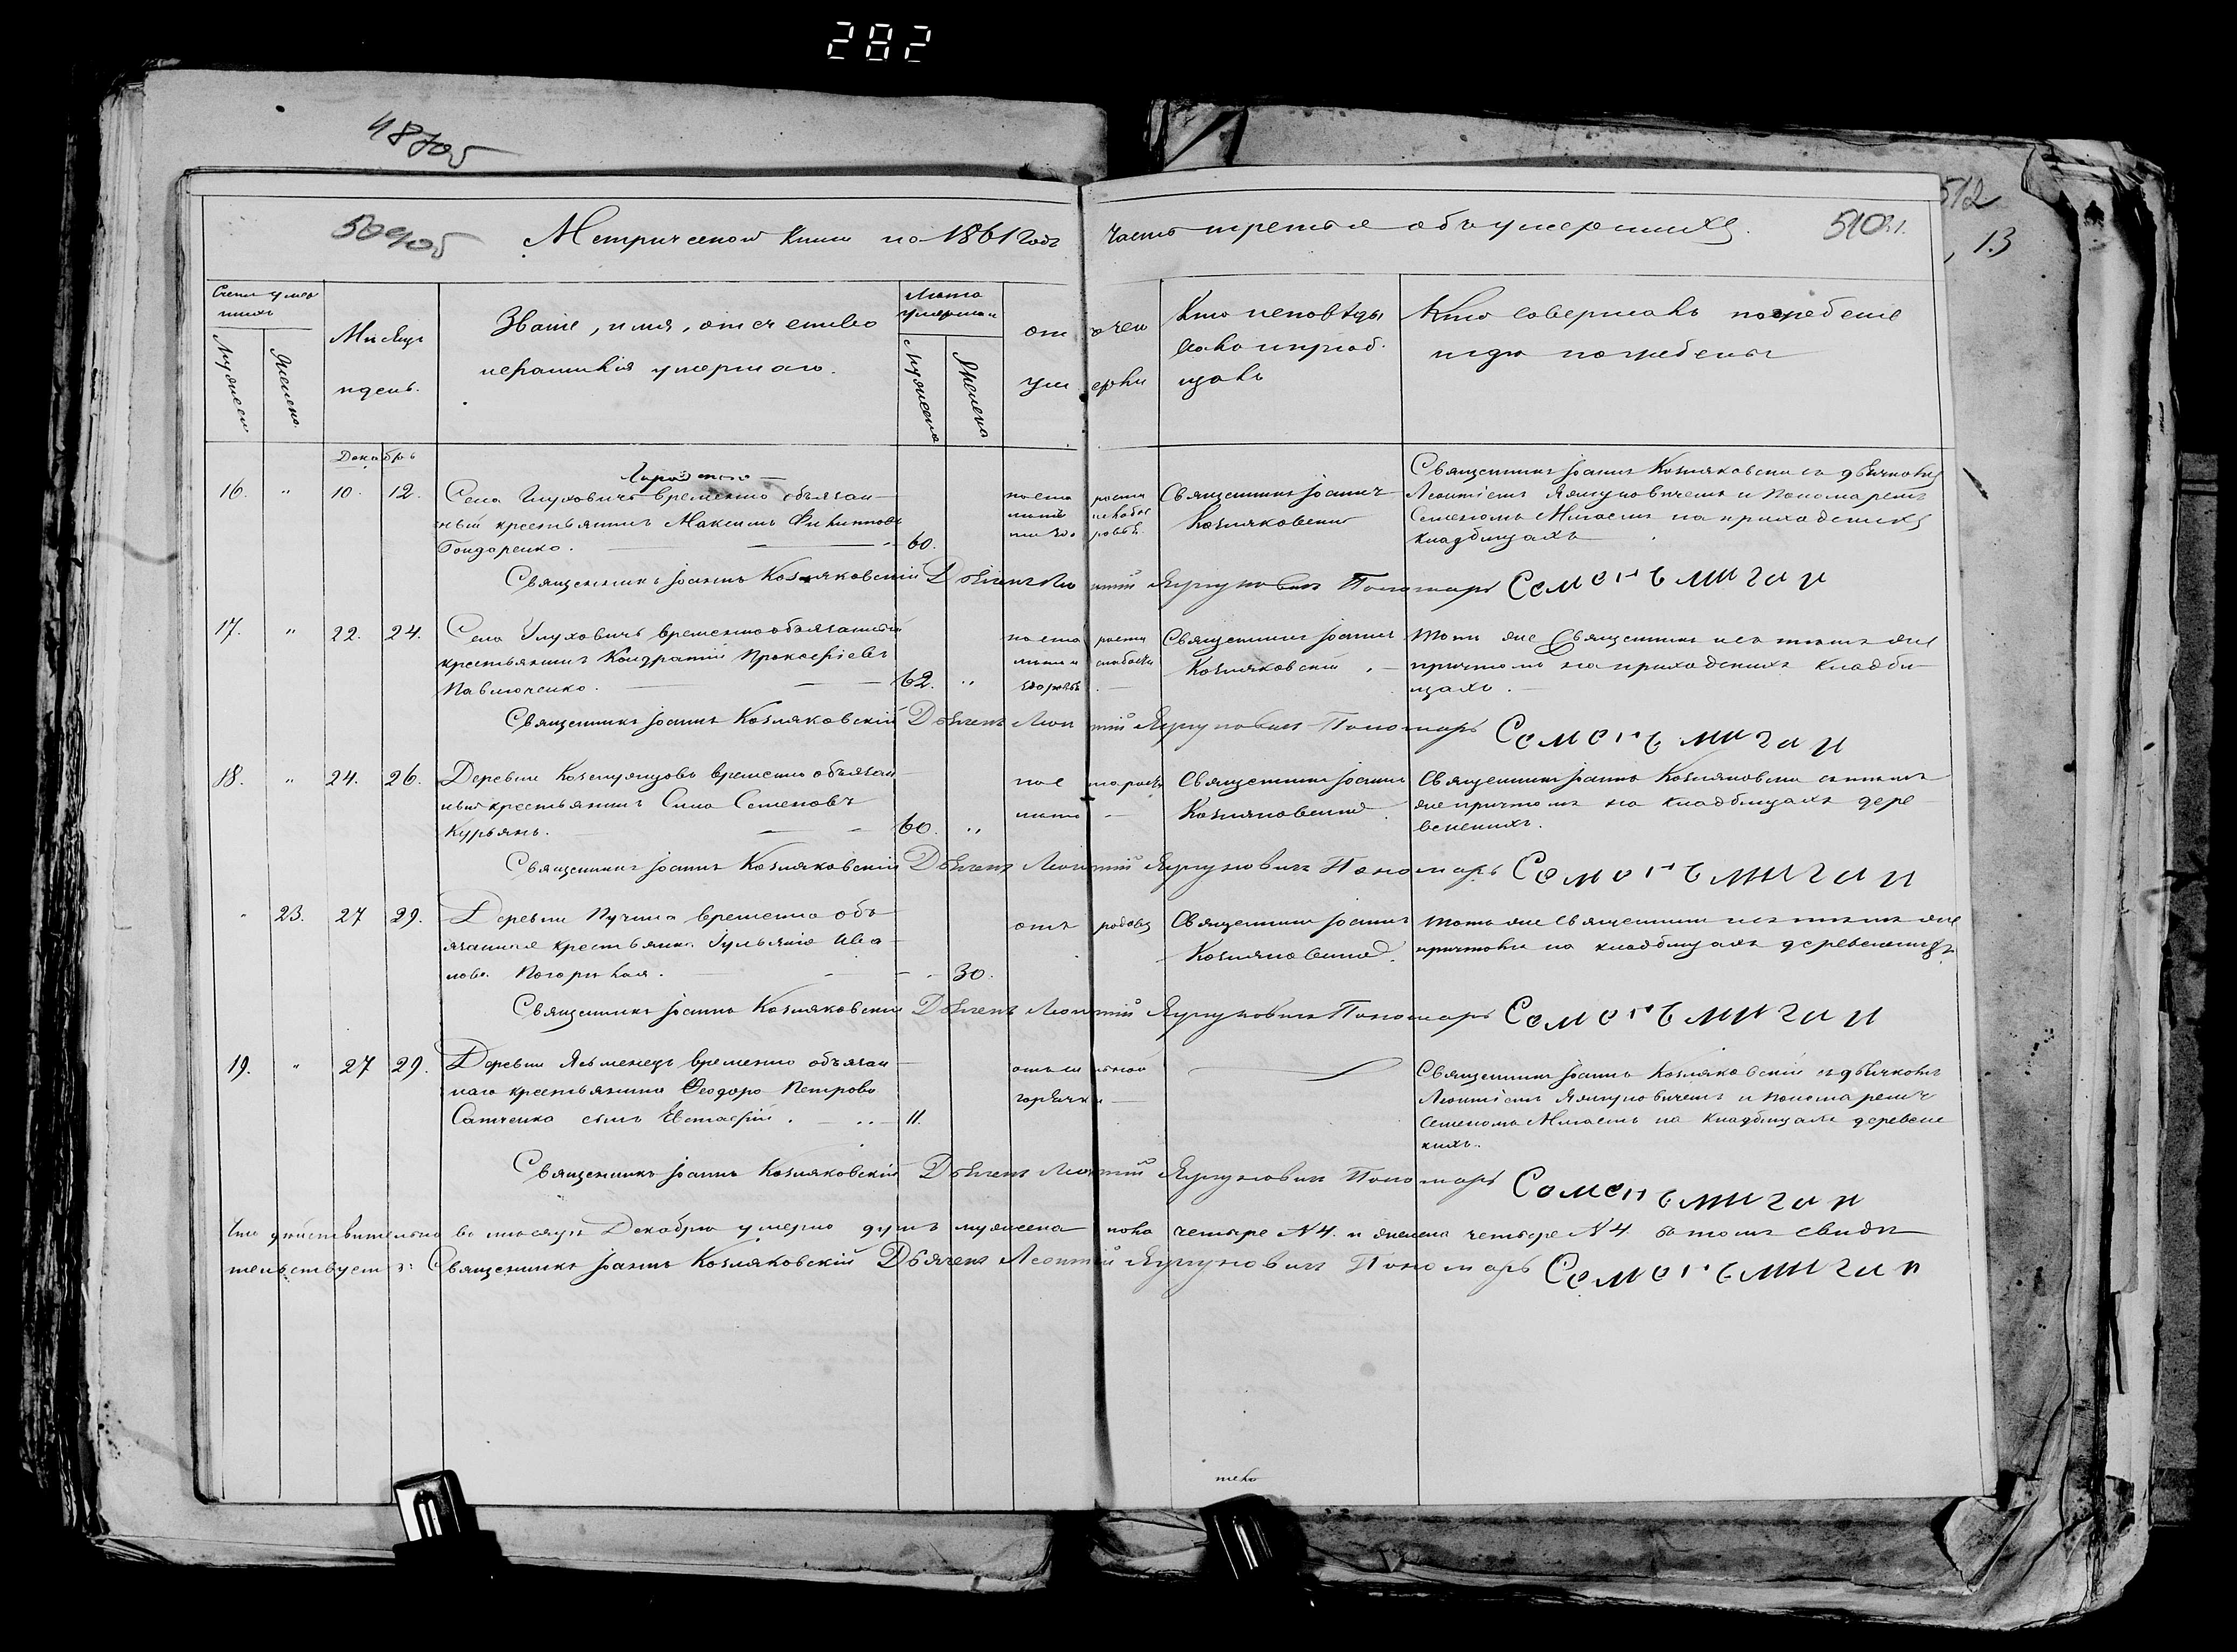 282
48 об
509 об Метрической книги на 1861 годъ часть третья объ умершихъ. 510
512
13
Счетъ умер
шихъ
Мужеска
Женска
Мѣсяцъ
и день.
Званіе, имя, отчество
и фамилія умершаго.
Лѣта
умершаго
Мужеска
Женска
отъ чего
умерли
Кто исповѣды
валъ и приоб
щалъ
Кто совершалъ погребеніе
и гдѣ погребены
Декабрь
16. " 10. 12. Села Глуховичъ временно обязан-
ный крестьянинъ Максимъ Филиповъ
Бондаренко. 60.
Священникъ Іоаннъ Козляковскій
Священникъ Іоаннъ Козляковскій съ дьячкомъ
Леонтіемъ Яцуковичемъ и пономаремъ
Семеномъ Мигаемъ на приходскихъ
кладбищахъ
Священникъ Іоаннъ Козляковскій Дьячекъ Леонтій Пономарь Семенъ Мигай
17. " 22. 24. Села Глуховичъ временно обязанный
крестьянинъ Кондратій Прокофіевъ
Павлюченко. 62. "
по старости
лишился слабости
здоровья
Священникъ Іоаннъ
Козляковскій
Тотъ же Священникъ и съ тѣмъ же
причтомъ на приходскихъ кладби-
щахъ.
Священникъ Іоаннъ Козляковскій Дьячекъ Леонтій Пономарь Семенъ Мигай
18. " 24. 26. Деревни временно обязан
ный крестьянинъ Сила Семеновъ
Курьянъ. 60. "
по старости
лѣтъ
Священникъ Іоаннъ
Козляковскій
Священникъ Іоаннъ Козляковскій съ тѣмъ
же причтомъ на кладбищахъ дере
венскихъ.
Священникъ Іоаннъ Козляковскій Дьячекъ Леонтій Пономарь Семенъ Мигай
" 23. 27 29. Деревни Пучина временно объ
язанная крестьянка Іульянія Ива-
нова 30.
отъ родовъ
Священникъ Іоаннъ
Козляковскій
Тотъ же Священникъ и съ тѣмъ же
причтомъ на кладбищахъ деревенскихъ
Священникъ Іоаннъ Козляковскій Дьячекъ Леонтій Пономарь Семенъ Мигай
19. " 27 29. Деревни Ясменецъ временно объязан
наго крестьянина Феодора Петрова
Сатченка сынъ Евстафій. 11.
отъ сильной
горячки
Священникъ Іоаннъ Козляковскій съ дьячкомъ
Леонтіемъ Яцуковичемъ и пономаремъ
Семеномъ Мигаемъ на кладбищахъ деревенс
кихъ.
Священникъ Іоаннъ Козляковскій Дьячекъ Леонтій Пономарь Семенъ Мигай
Что дѣйствительно въ мѣсяцѣ Декабрѣ умерло душъ мужеска пола четыре №4. и женска четыре №4. въ томъ свидѣ
тельствуемъ: Священникъ Іоаннъ Козляковскій Дьячекъ Леонтій Пономарь Семенъ Мигай